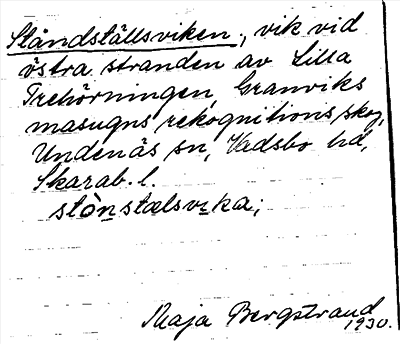 Ståndställsviken, vik vid
östra stranden av Lilla
Trehörningen, Granviks
masugns rekognitions skog,
Undenäs sn, Vadsbo hd,
Skarab. l.
stòn̲stælsvɪka;
Maja Bergstrand
1930.